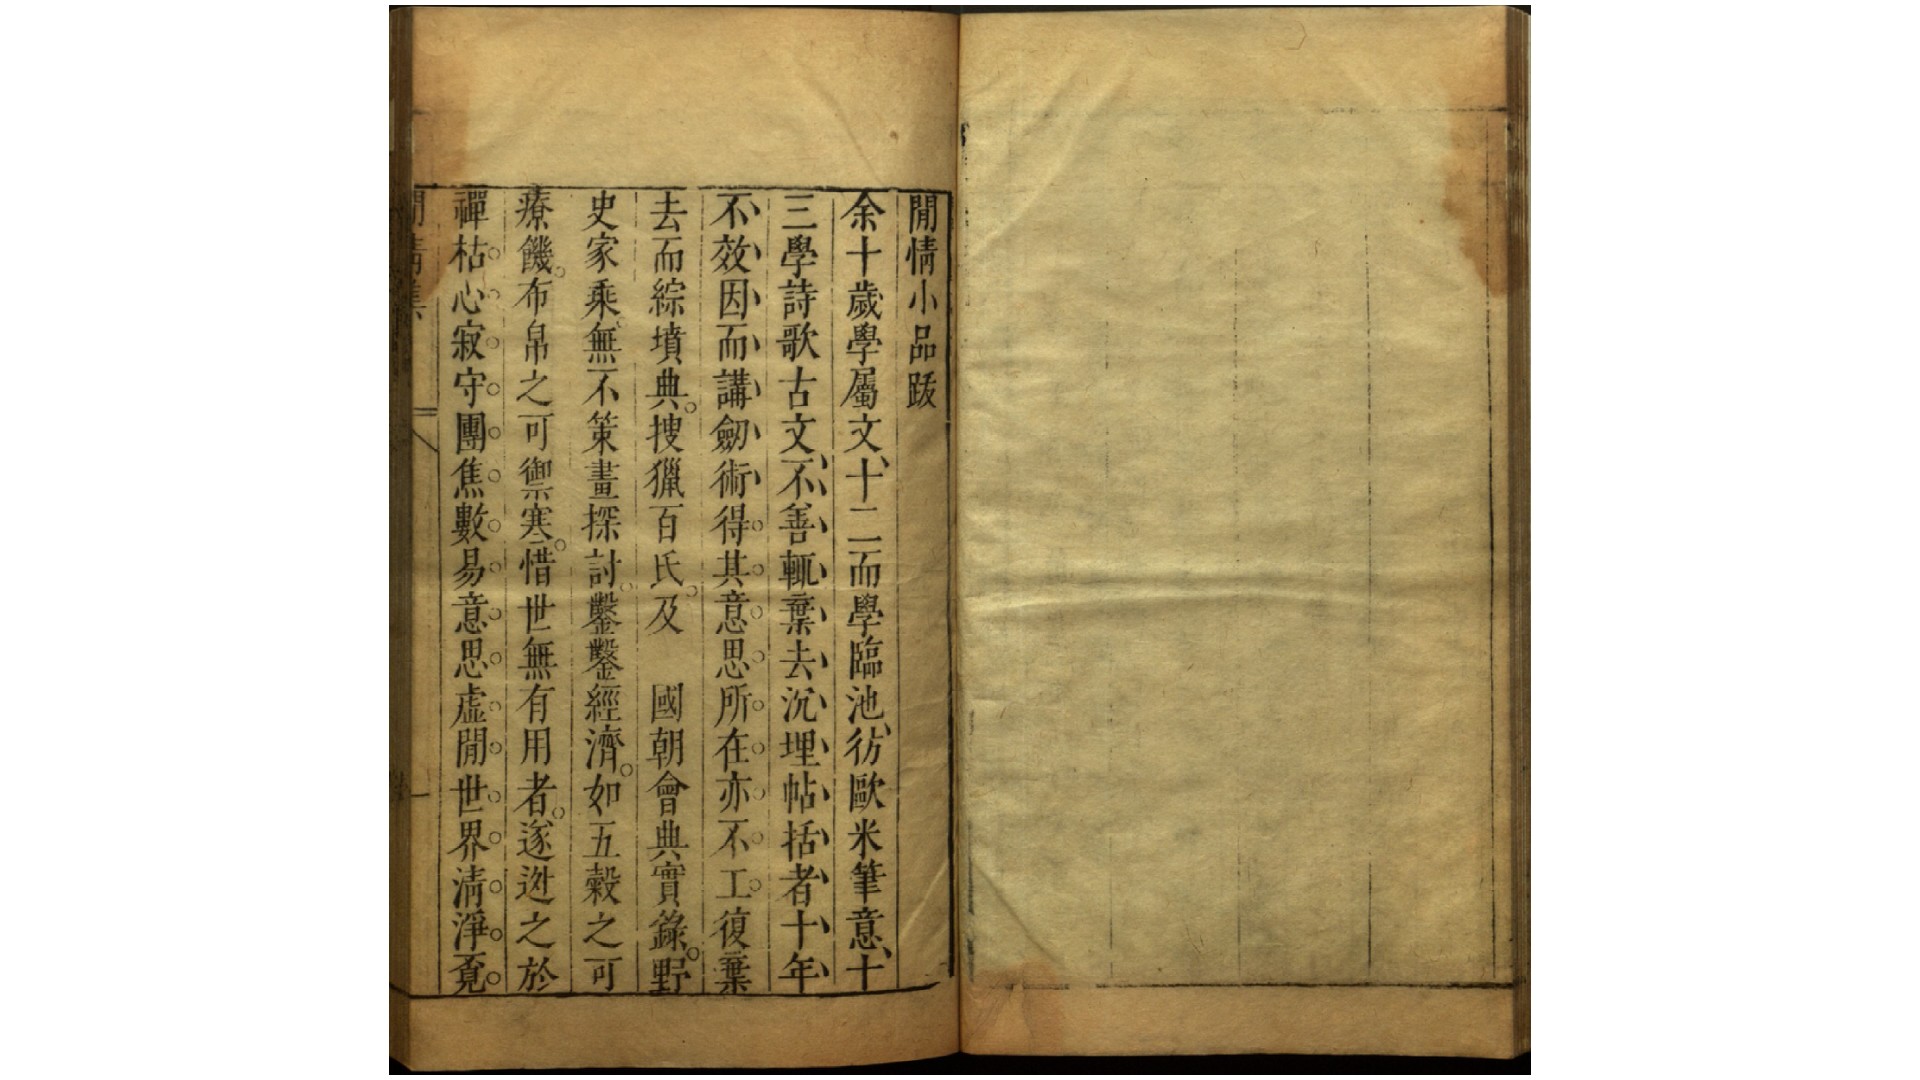 閒情小品跋
余十歲學屬文、十二而學臨池、彷歐米筆意、十
三學詩歌古文、不善輒棄去沉埋帖括者十年
不效因而講劒術得其意思所在亦不工復棄
去而綜墳典。搜獵百氏。及　國朝會典實錄。野
史家乘、無不策畫探討。鑿鑿經濟。如五穀之可
療饑。布帛之可禦寒。惜世無有用者。逐迯之於
禪枯心寂守團焦數易意思虛閒世界清淨覔
閒情集